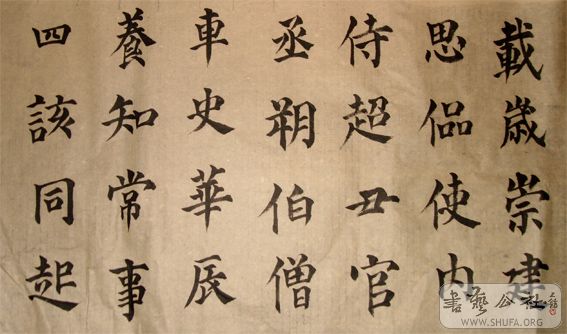 載歲崇建
思偘使内
侍超丑官
丞朔伯僧
車史華辰
養知常事
四該同起
書藝公社
WWW.SHUFA.ORG